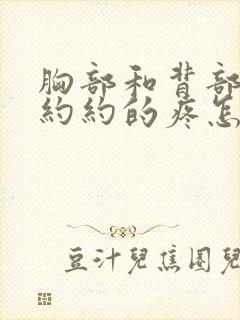 胸部和背部
約約的疼怎
豆汁兒焦圈兒